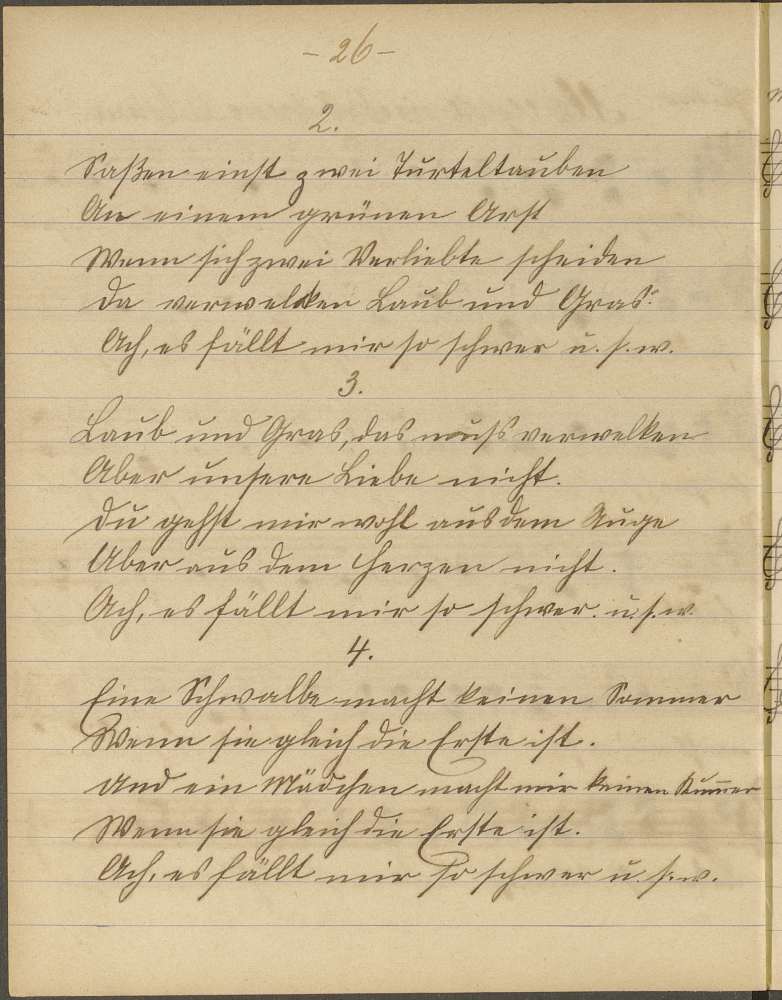 - 26 -
2.
Saßen einst zwei Turteltauben
An einem grünen Arst
Wenn sich zwei Verliebte scheiden
Da verwelken Laub und Gras.
Ach, es fällt mir so schwer u. s. w.
3.
Laub und Gras, das muß verwelken
Aber unsere Liebe nicht.
Du gehst mir wohl aus dem Auge
Aber aus dem Herzen nicht.
Ach, es fällt mir so schwer. u. s. w.
4.
Eine Schwalbe macht keinen Sommer
Wenn sie gleich die Erste ist.
Und ein Mädchen macht mir keinen Kum̅er
Wenn sie gleich die Erste ist.
Ach, es fällt mir so schwer u. s. w.